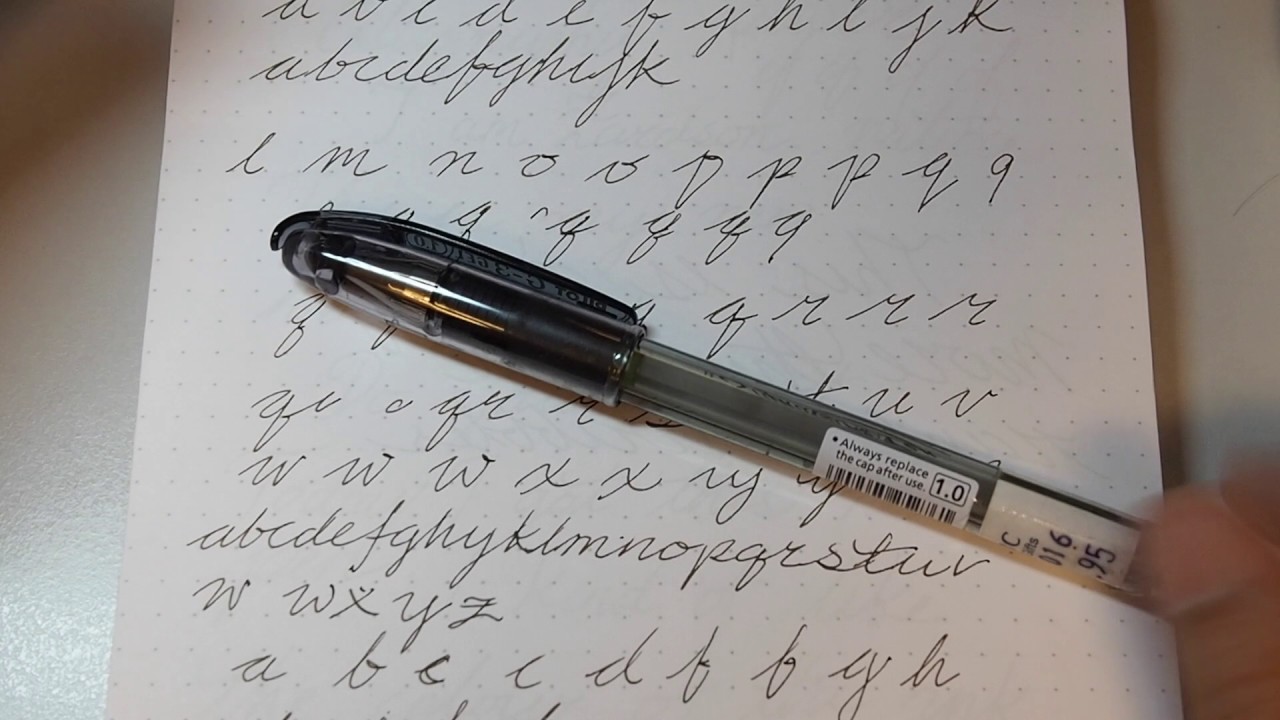 a b c d e f g h i j k
abcdefghijk
l m n o o p p p q q
q q q q q q
q q r r r
qu a qr r s t u v
w w w x x y y
abcdefghyklmnopqrstuv
w wxyz
a b c c d f f g h
PILOT G-3 GEL (1.0)
• Always replace
the cap after use. 1.0